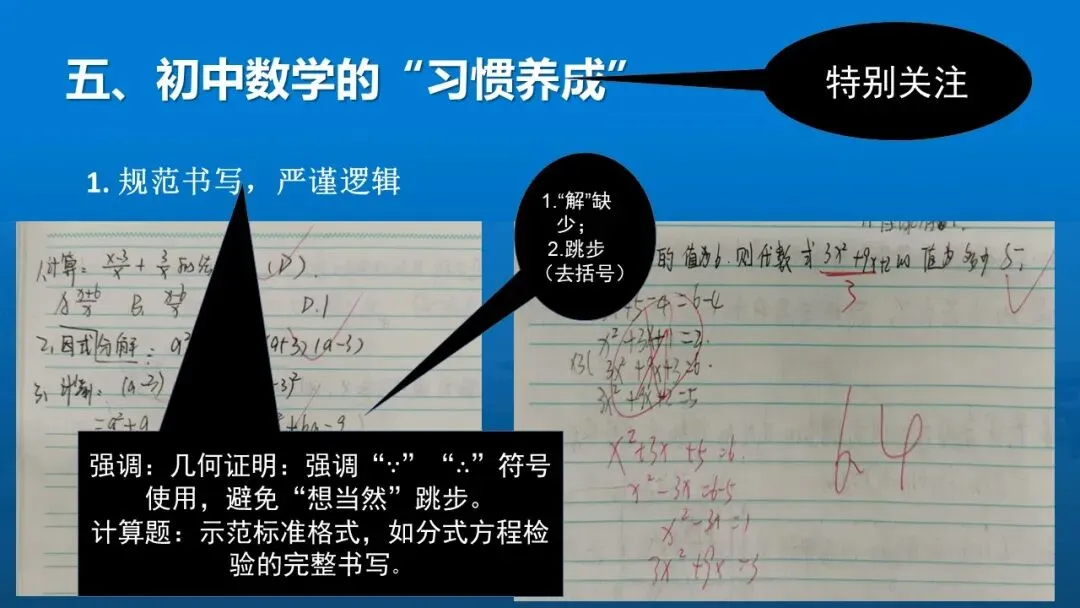 五、初中数学的“习惯养成”
特别关注
1. 规范书写，严谨逻辑
1.“解”缺
少；
2.跳步
（去括号）
1.计算： (x-3)/x + 3/x
(D)
A. (x+6)/x B. (x-6)/x D. 1
2、因式分解： a² (a+3)(a-3)
3、计算： (a-3) -3)²
=a²+9
的值为6.则代数式 3x²+9x+2的值为多少 5;
3
+5-4=6-4
x²+3x+1=2.
3x²+9x+3=6.
3x²+9x+2=5
x²+3x+5=6.
x²-3x=6-5
x²-3x=1
3x²+9x=3
64
强调：几何证明：强调“∵”“∴”符号
使用，避免“想当然”跳步。
计算题：示范标准格式，如分式方程检
验的完整书写。